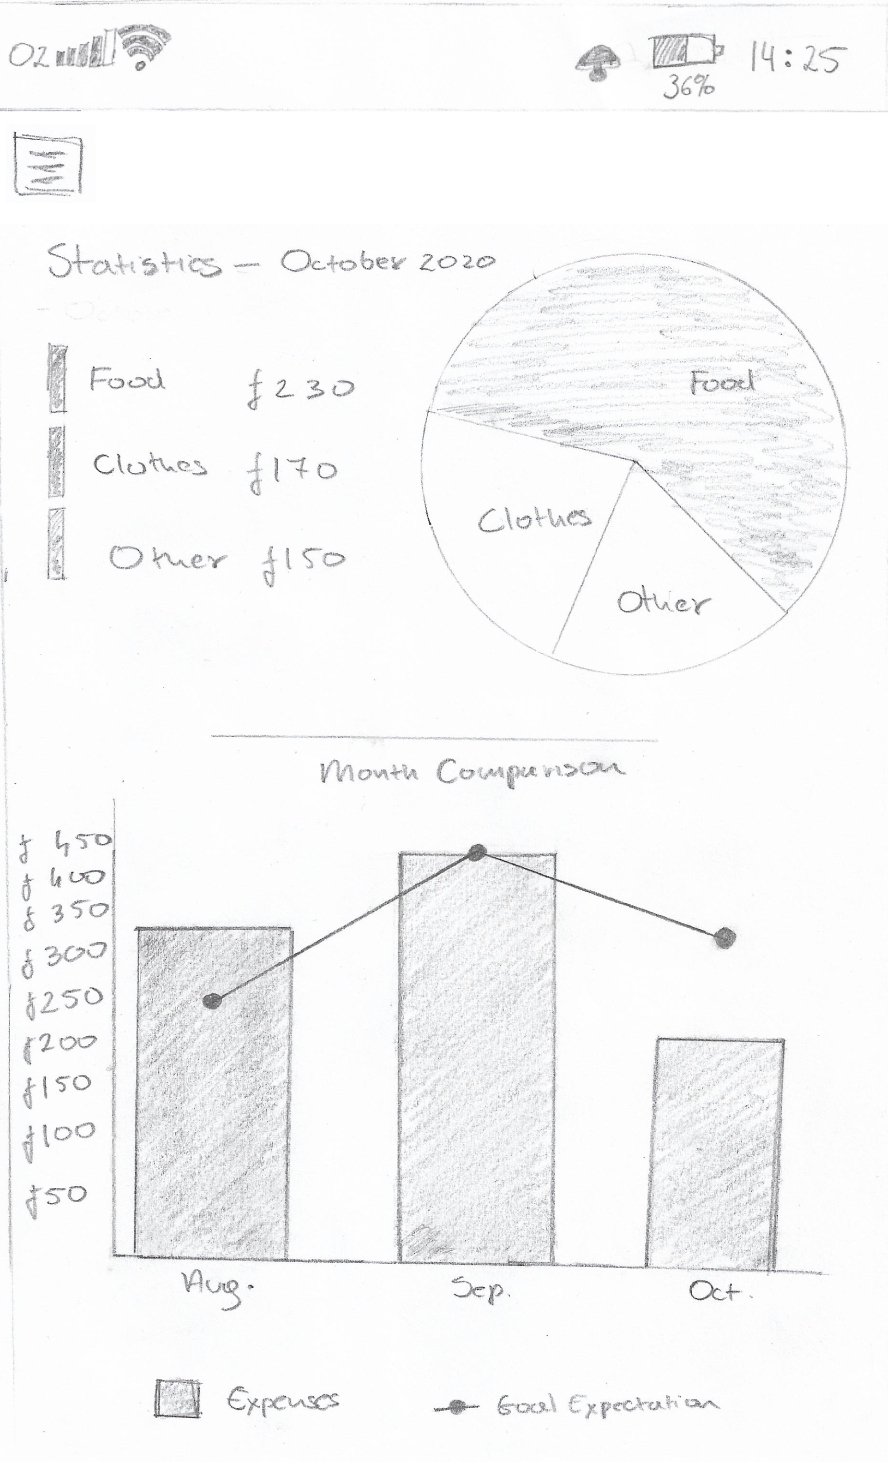 O2 14:25
36%
Statistics – October 2020
Food £230
Clothes £170
Other £150
Food
Clothes
Other
Month Comparison
£450
£400
£350
£300
£250
£200
£150
£100
£50
Aug. Sep. Oct.
Expenses Goal Expectation